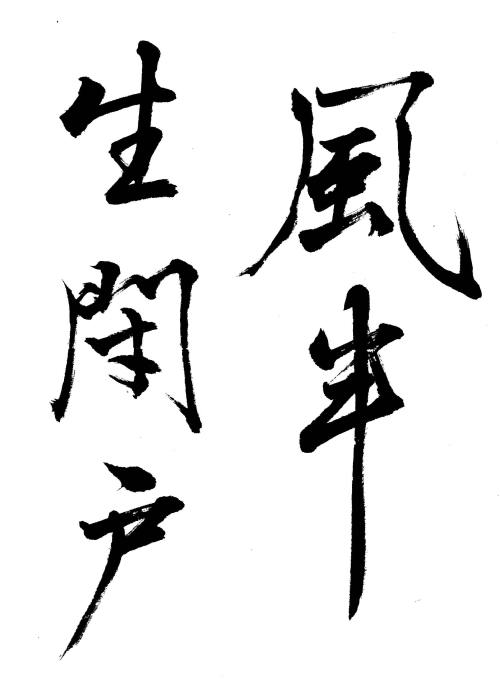 風
生閉戸